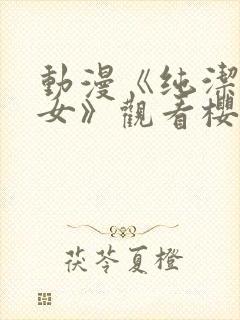 動漫《纯潔
女》觀看櫻
茯苓夏橙